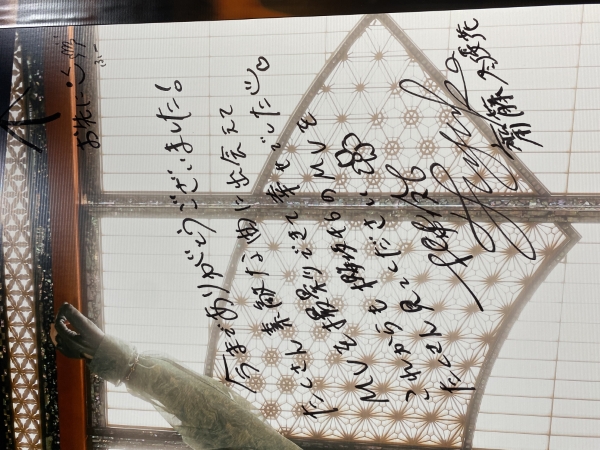 お先に
ふー
今までありがとうございました!
たくさん素敵な曲に出会えて
MVを撮影できて幸せでした
これからも櫻坂46のMVを
たくさん見てください
櫻坂46
齋藤冬優花